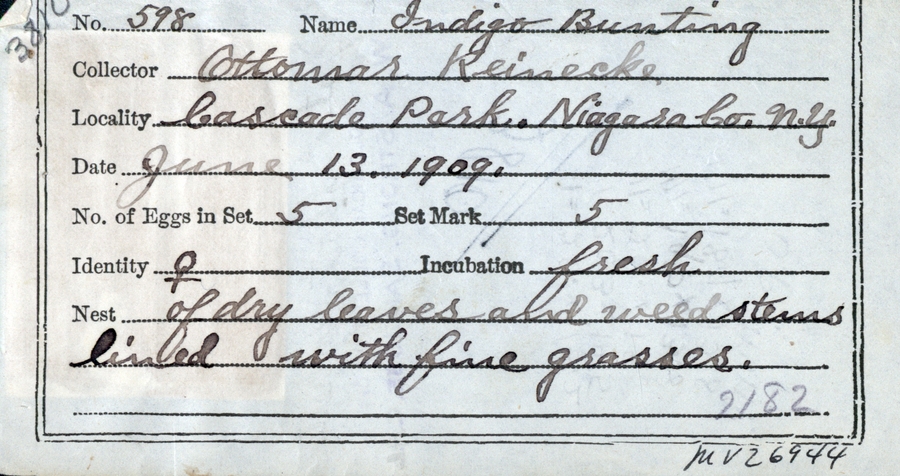 No. 598 Name Indigo Bunting
Collector Ottomar Reinecke
Locality Cascade Park. Niagara Co. N.Y.
Date June 13. 1909.
No. of Eggs in Set 5 Set Mark 5
Identity ♀ Incubation fresh
Nest of dry leaves and weed stems
lined with fine grasses.
2182
MV26944